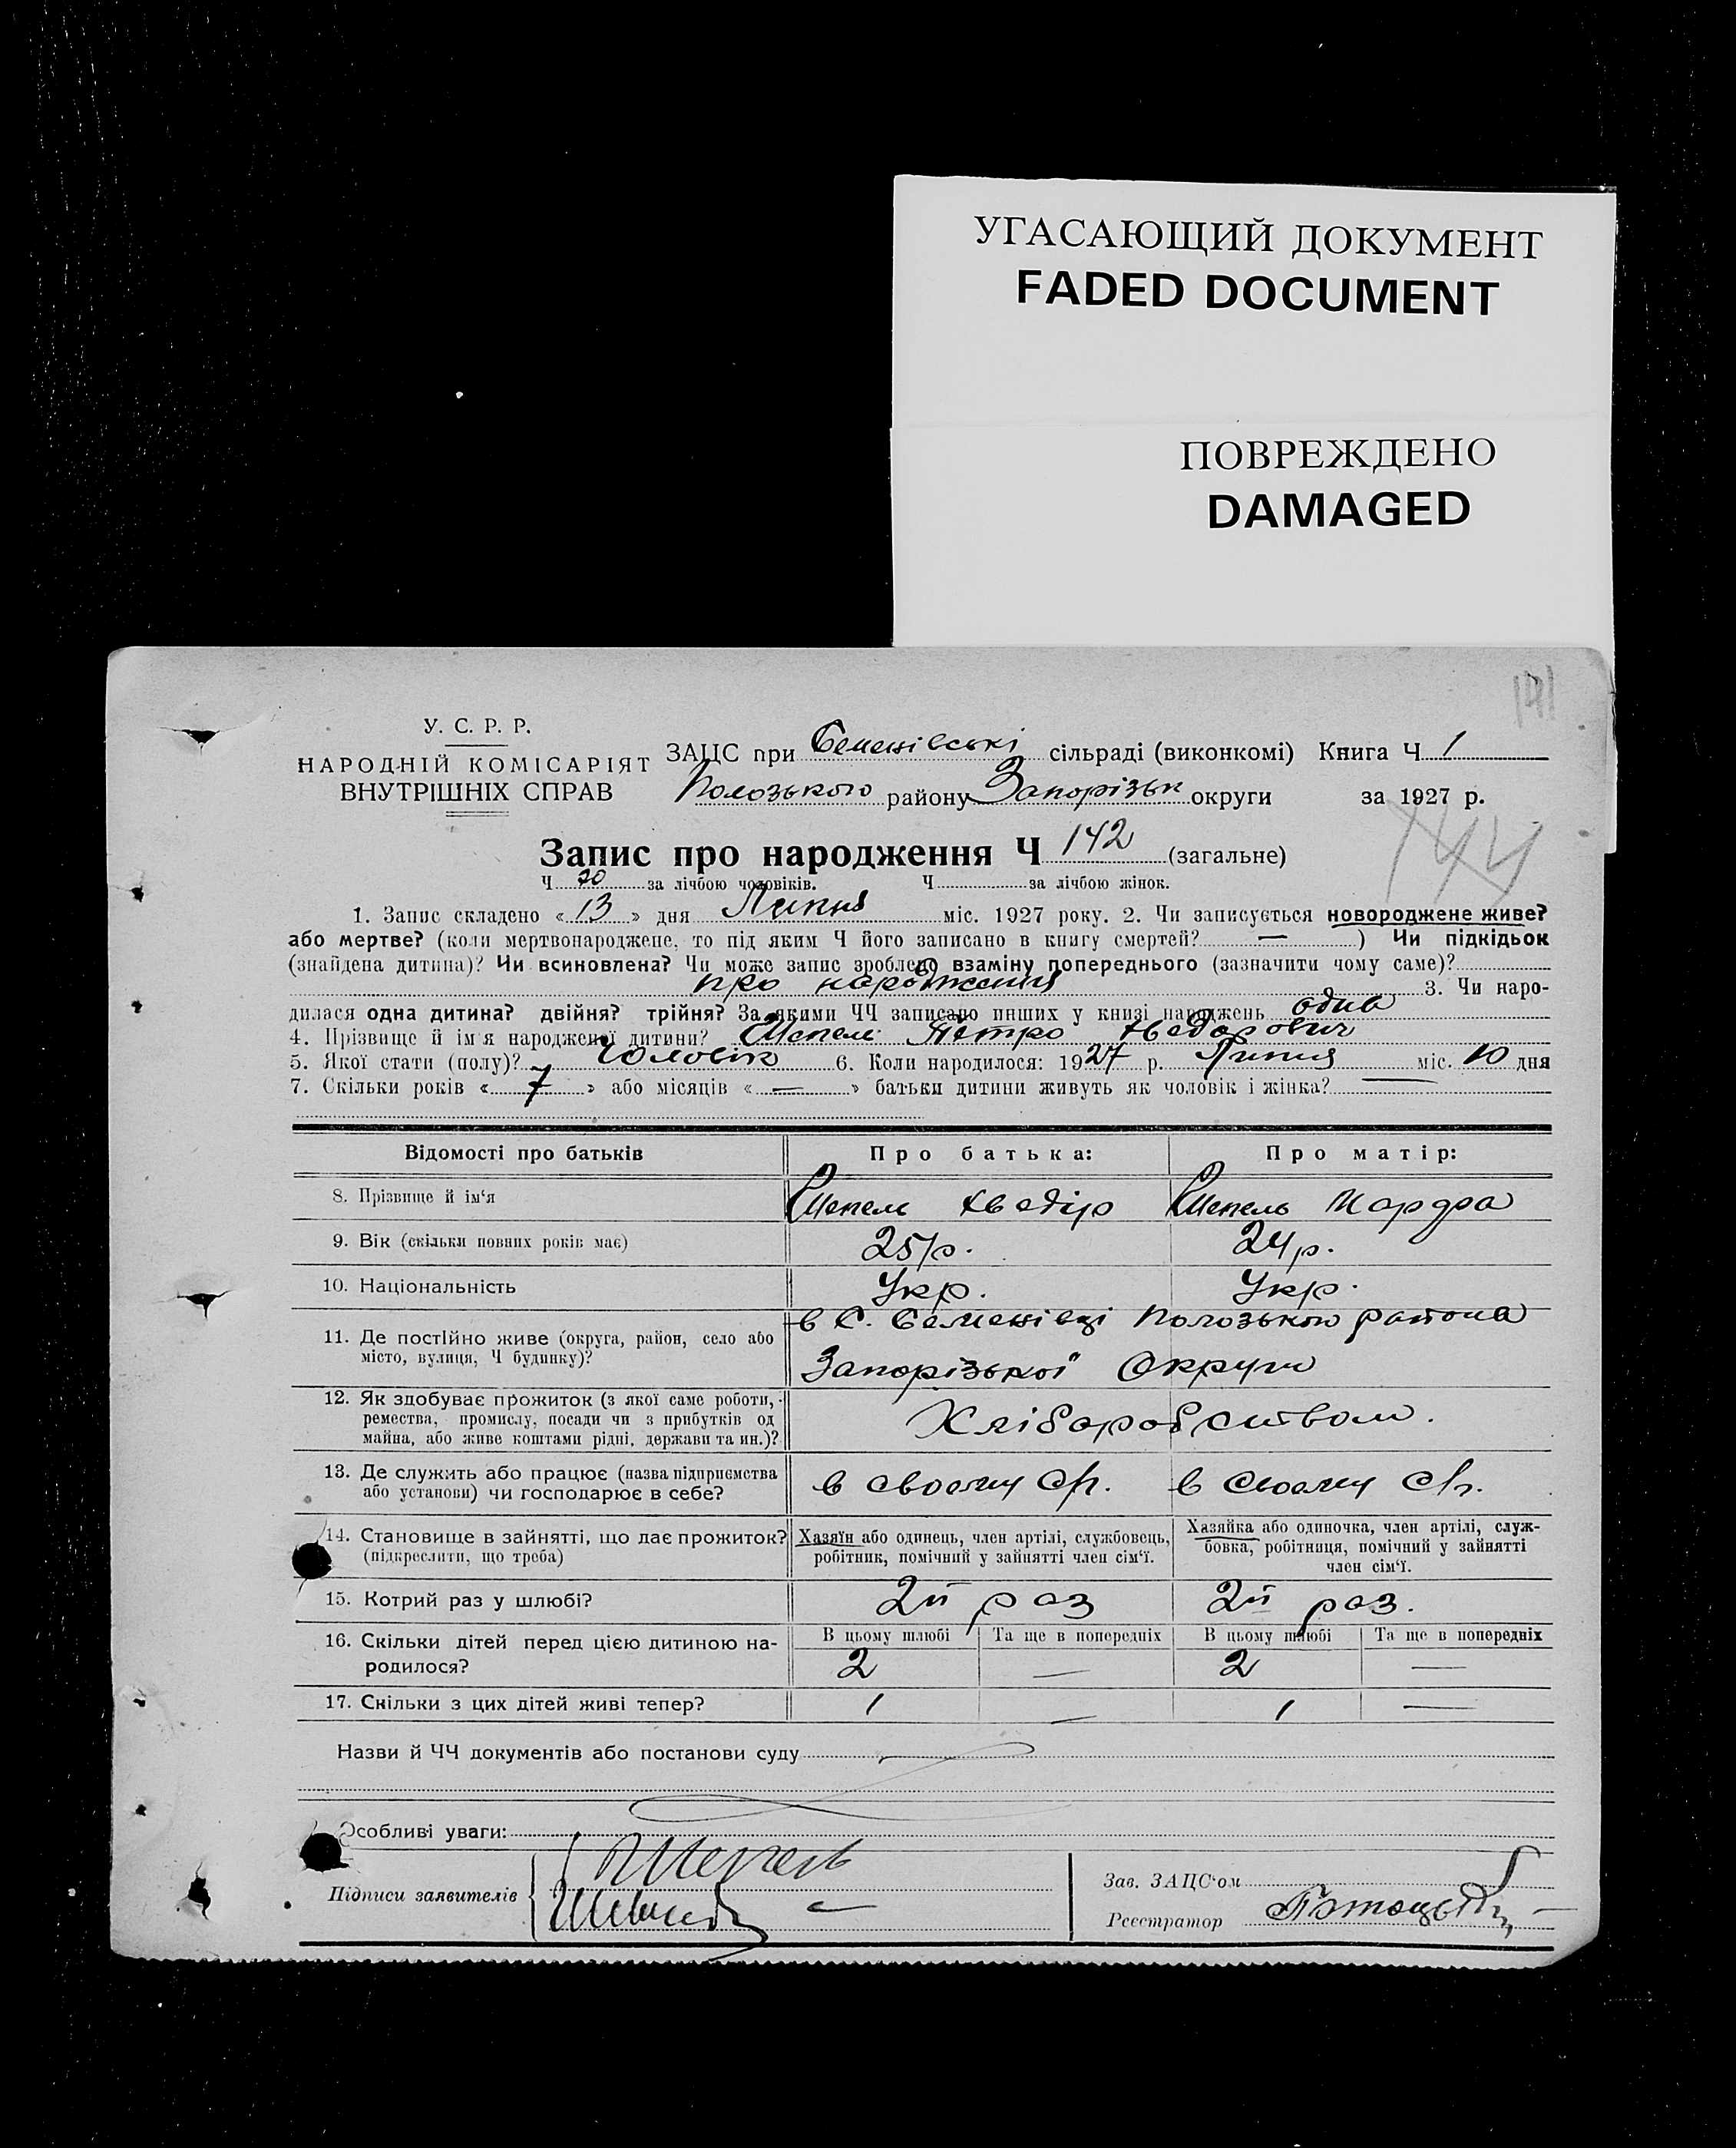 УГАСАЮЩИЙ ДОКУМЕНТ
FADED DOCUMENT
ПОВРЕЖДЕНО
DAMAGED
У. С. Р. Р.
НАРОДНІЙ КОМІСАРІЯТ
ВНУТРІШНІХ СПРАВ
ЗАЦС при Семенівські сільраді (виконкомі) Книга Ч 1
Полозького району Запорізьк округи за 1927 р.
144
Запис про народження Ч 142 (загальне)
Ч 70 за лічбою чоловіків. Ч за лічбою жінок.
1. Запис складено «13» дня Липня міс. 1927 року. 2. Чи записується новороджене живе?
або мертве? (коли мертвонароджене, то під яким Ч його записано в книгу смертей? — ) Чи підкідьок
(знайдена дитина)? Чи всиновлена? Чи може запис зроблено взаміну попереднього (зазначити чому саме)?
про народження 3. Чи наро-
дилася одна дитина? двійня? трійня? За якими ЧЧ записано инших у книзі народжень одна
4. Прізвище й ім'я народженої дитини? Шепель Петро Хведорович
5. Якої стати (полу)? Чоловік 6. Коли народилося: 1927 р. Липня міс. 10 дня
7. Скільки років «7» або місяців «—» батьки дитини живуть як чоловік і жінка? —
Відомості про батьків Про батька: Про матір:
8. Прізвище й ім'я Шепель Хведір Шепель Марфа
9. Вік (скільки повних років має) 25 р. 24 р.
10. Національність Укр. Укр.
11. Де постійно живе (округа, район, село або в С. Семенівці Полозького району
місто, вулиця, Ч будинку)? Запорізької Округи
12. Як здобуває прожиток (з якої саме роботи,
ремества, промислу, посади чи з прибутків од Хліборобством.
майна, або живе коштами рідні, держави та ин.)?
13. Де служить або працює (назва підприємства в своєму с/г. в своєму с/г.
або установи) чи господарює в себе?
14. Становище в зайнятті, що дає прожиток? Хазяїн або одинець, член артілі, службовець, Хазяйка або одиночка, член артілі, служ-
(підкреслити, що треба) робітник, помічний у зайнятті член сім'ї. бовка, робітниця, помічний у зайнятті
член сім'ї.
15. Котрий раз у шлюбі? 2й раз 2й раз.
16. Скільки дітей перед цією дитиною на- В цьому шлюбі Та ще в попередніх В цьому шлюбі Та ще в попередніх
родилося? 2 — 2 —
17. Скільки з цих дітей живі тепер? 1 — 1 —
Назви й ЧЧ документів або постанови суду
Особливі уваги:
Шепель
Підписи заявителів
Зав. ЗАЦС'ом
Реєстратор